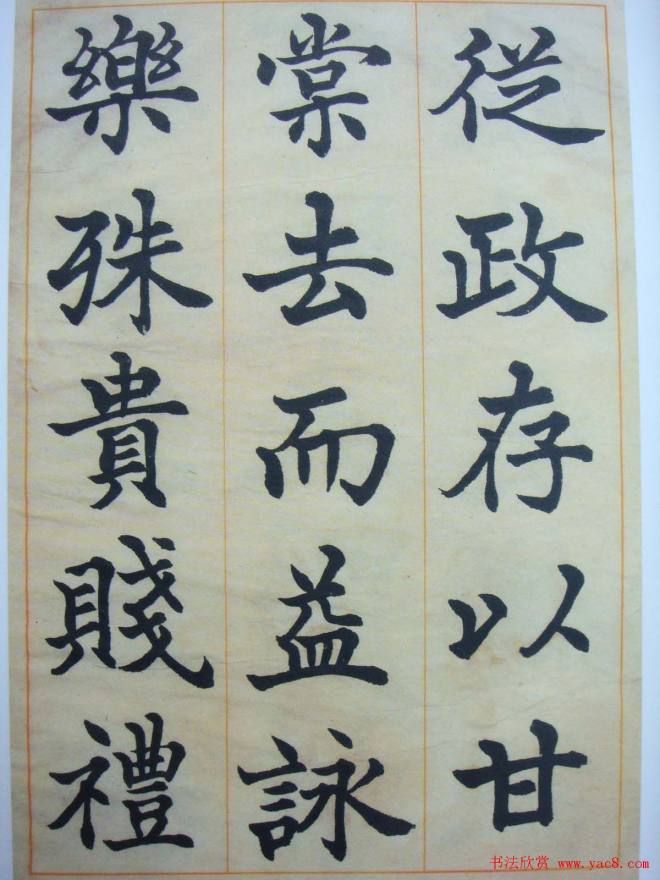 從政存以甘
棠去而益詠
樂殊貴賤禮
书法欣赏 www.yac8.com